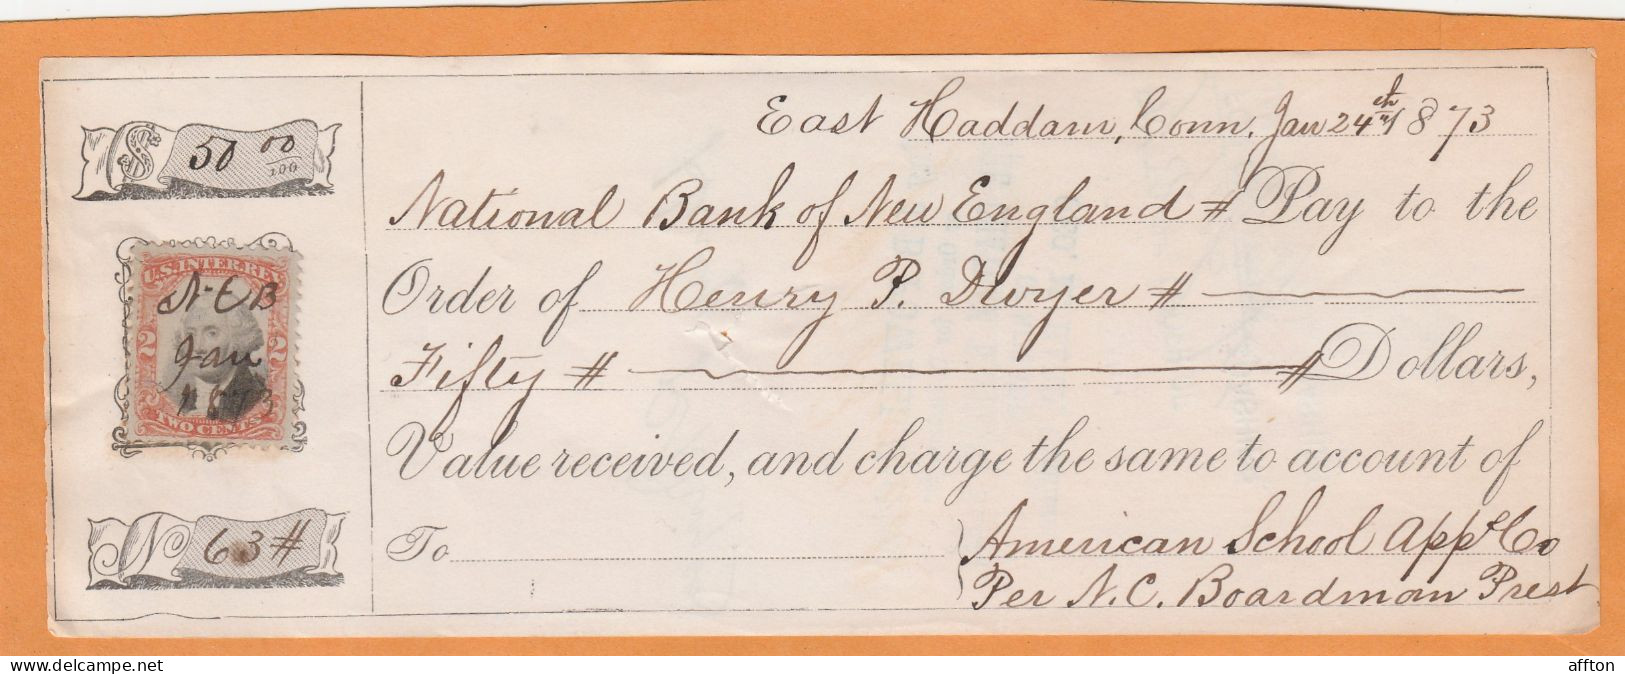 $ 50 00/100
East Haddam, Conn. Jan 24th 1873
National Bank of New England # Pay to the
Order of Henry P. Dwyer #
Fifty # # Dollars,
Value received, and charge the same to account of
To
American School App. Co
Per N.C. Boardman Prest
U.S. INTER. REV.
Jan
1873
2 2
TWO CENTS
No 63 #
affton